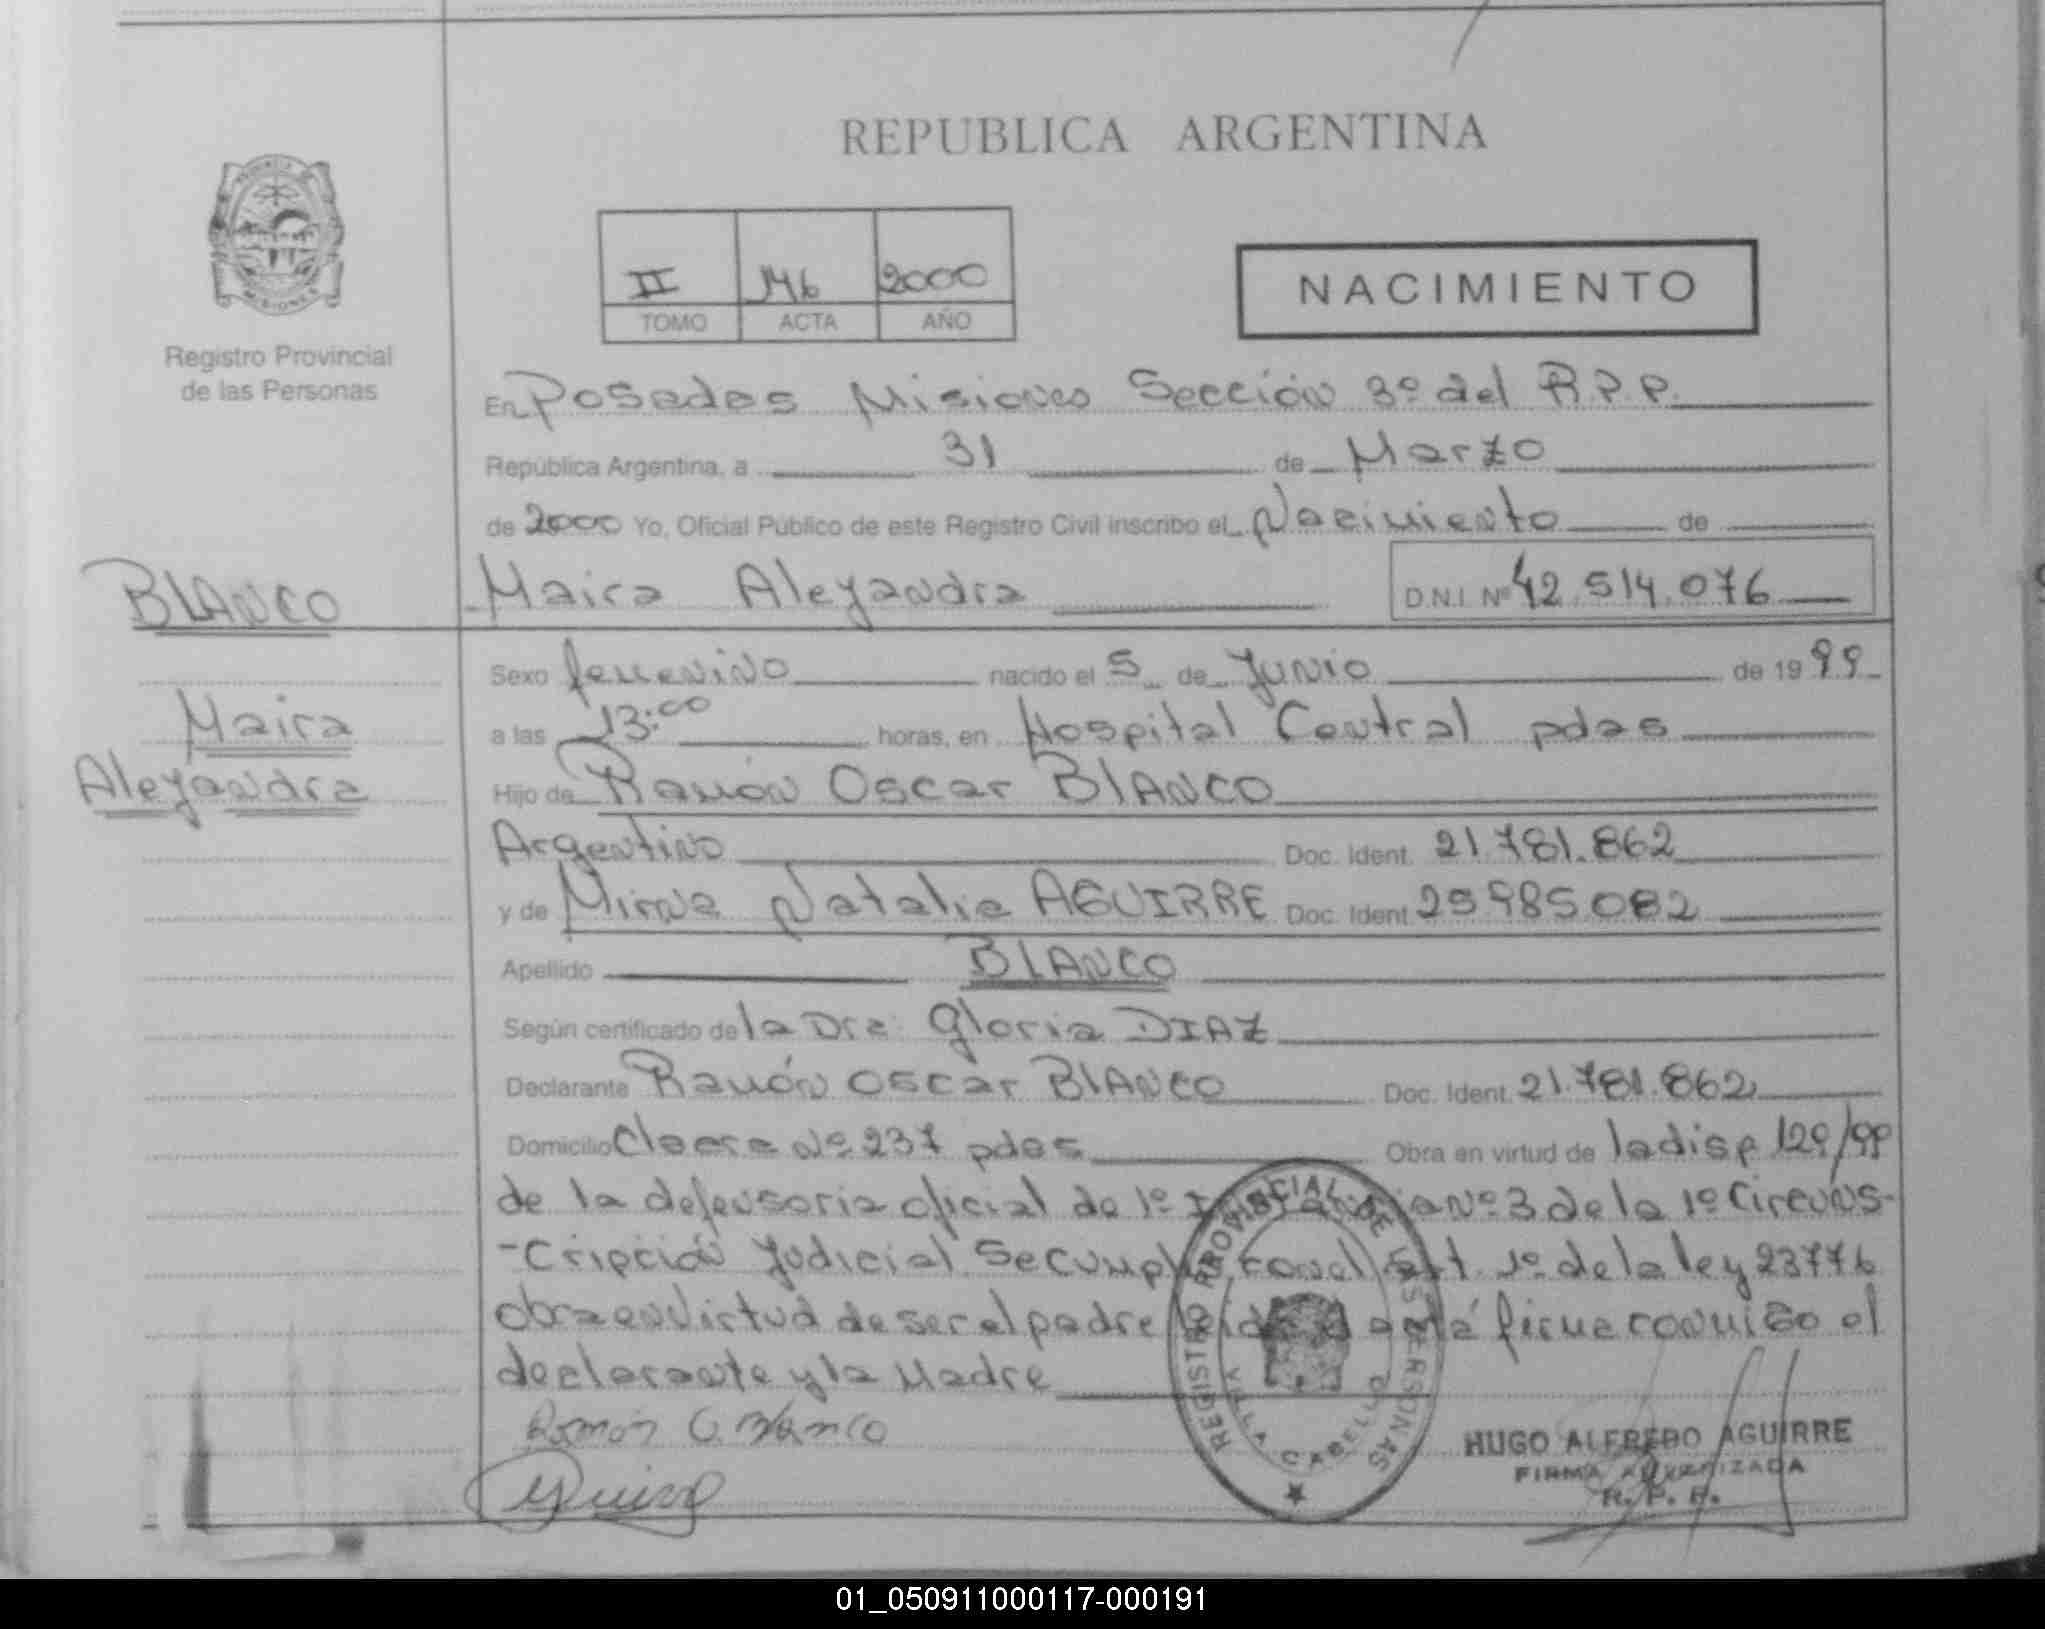 REPUBLICA ARGENTINA
II 146 2000
TOMO ACTA AÑO
NACIMIENTO
Registro Provincial
de las Personas
En Posadas Misiones Sección 3º del R.P.P.
República Argentina, a 31 de Marzo
de 2000 Yo, Oficial Público de este Registro Civil inscribo el Nacimiento de
BLANCO
Maira Alejandra D.N.I. Nº 42.514.076
Sexo femenino nacido el 5 de Junio de 1999
Maira
a las 13:00 horas, en Hospital Central pdas
Alejandra
Hijo de Ramón Oscar BLANCO
Argentino Doc. Ident. 21.781.862
y de Mirna Natalia AGUIRRE Doc. Ident. 29985082
Apellido BLANCO
Según certificado de la Dra. Gloria DIAZ
Declarante Ramón Oscar BLANCO Doc. Ident. 21.781.862
Domicilio Nº 237 pdas Obra en virtud de la disp 129/99
de la defensoria oficial de 1º Nº 3 de la 1º Circuns-
-cripción Judicial Se cumpl con el art. 1º de la ley 23776
obra en virtud de ser el padre firma conmigo el
declarante y la Madre
Ramón O. Blanco
REGISTRO PROVINCIAL DE LAS PERSONAS
VILLA CABELLO
HUGO ALFREDO AGUIRRE
FIRMA AUTORIZADA
R. P. P.
01_050911000117-000191